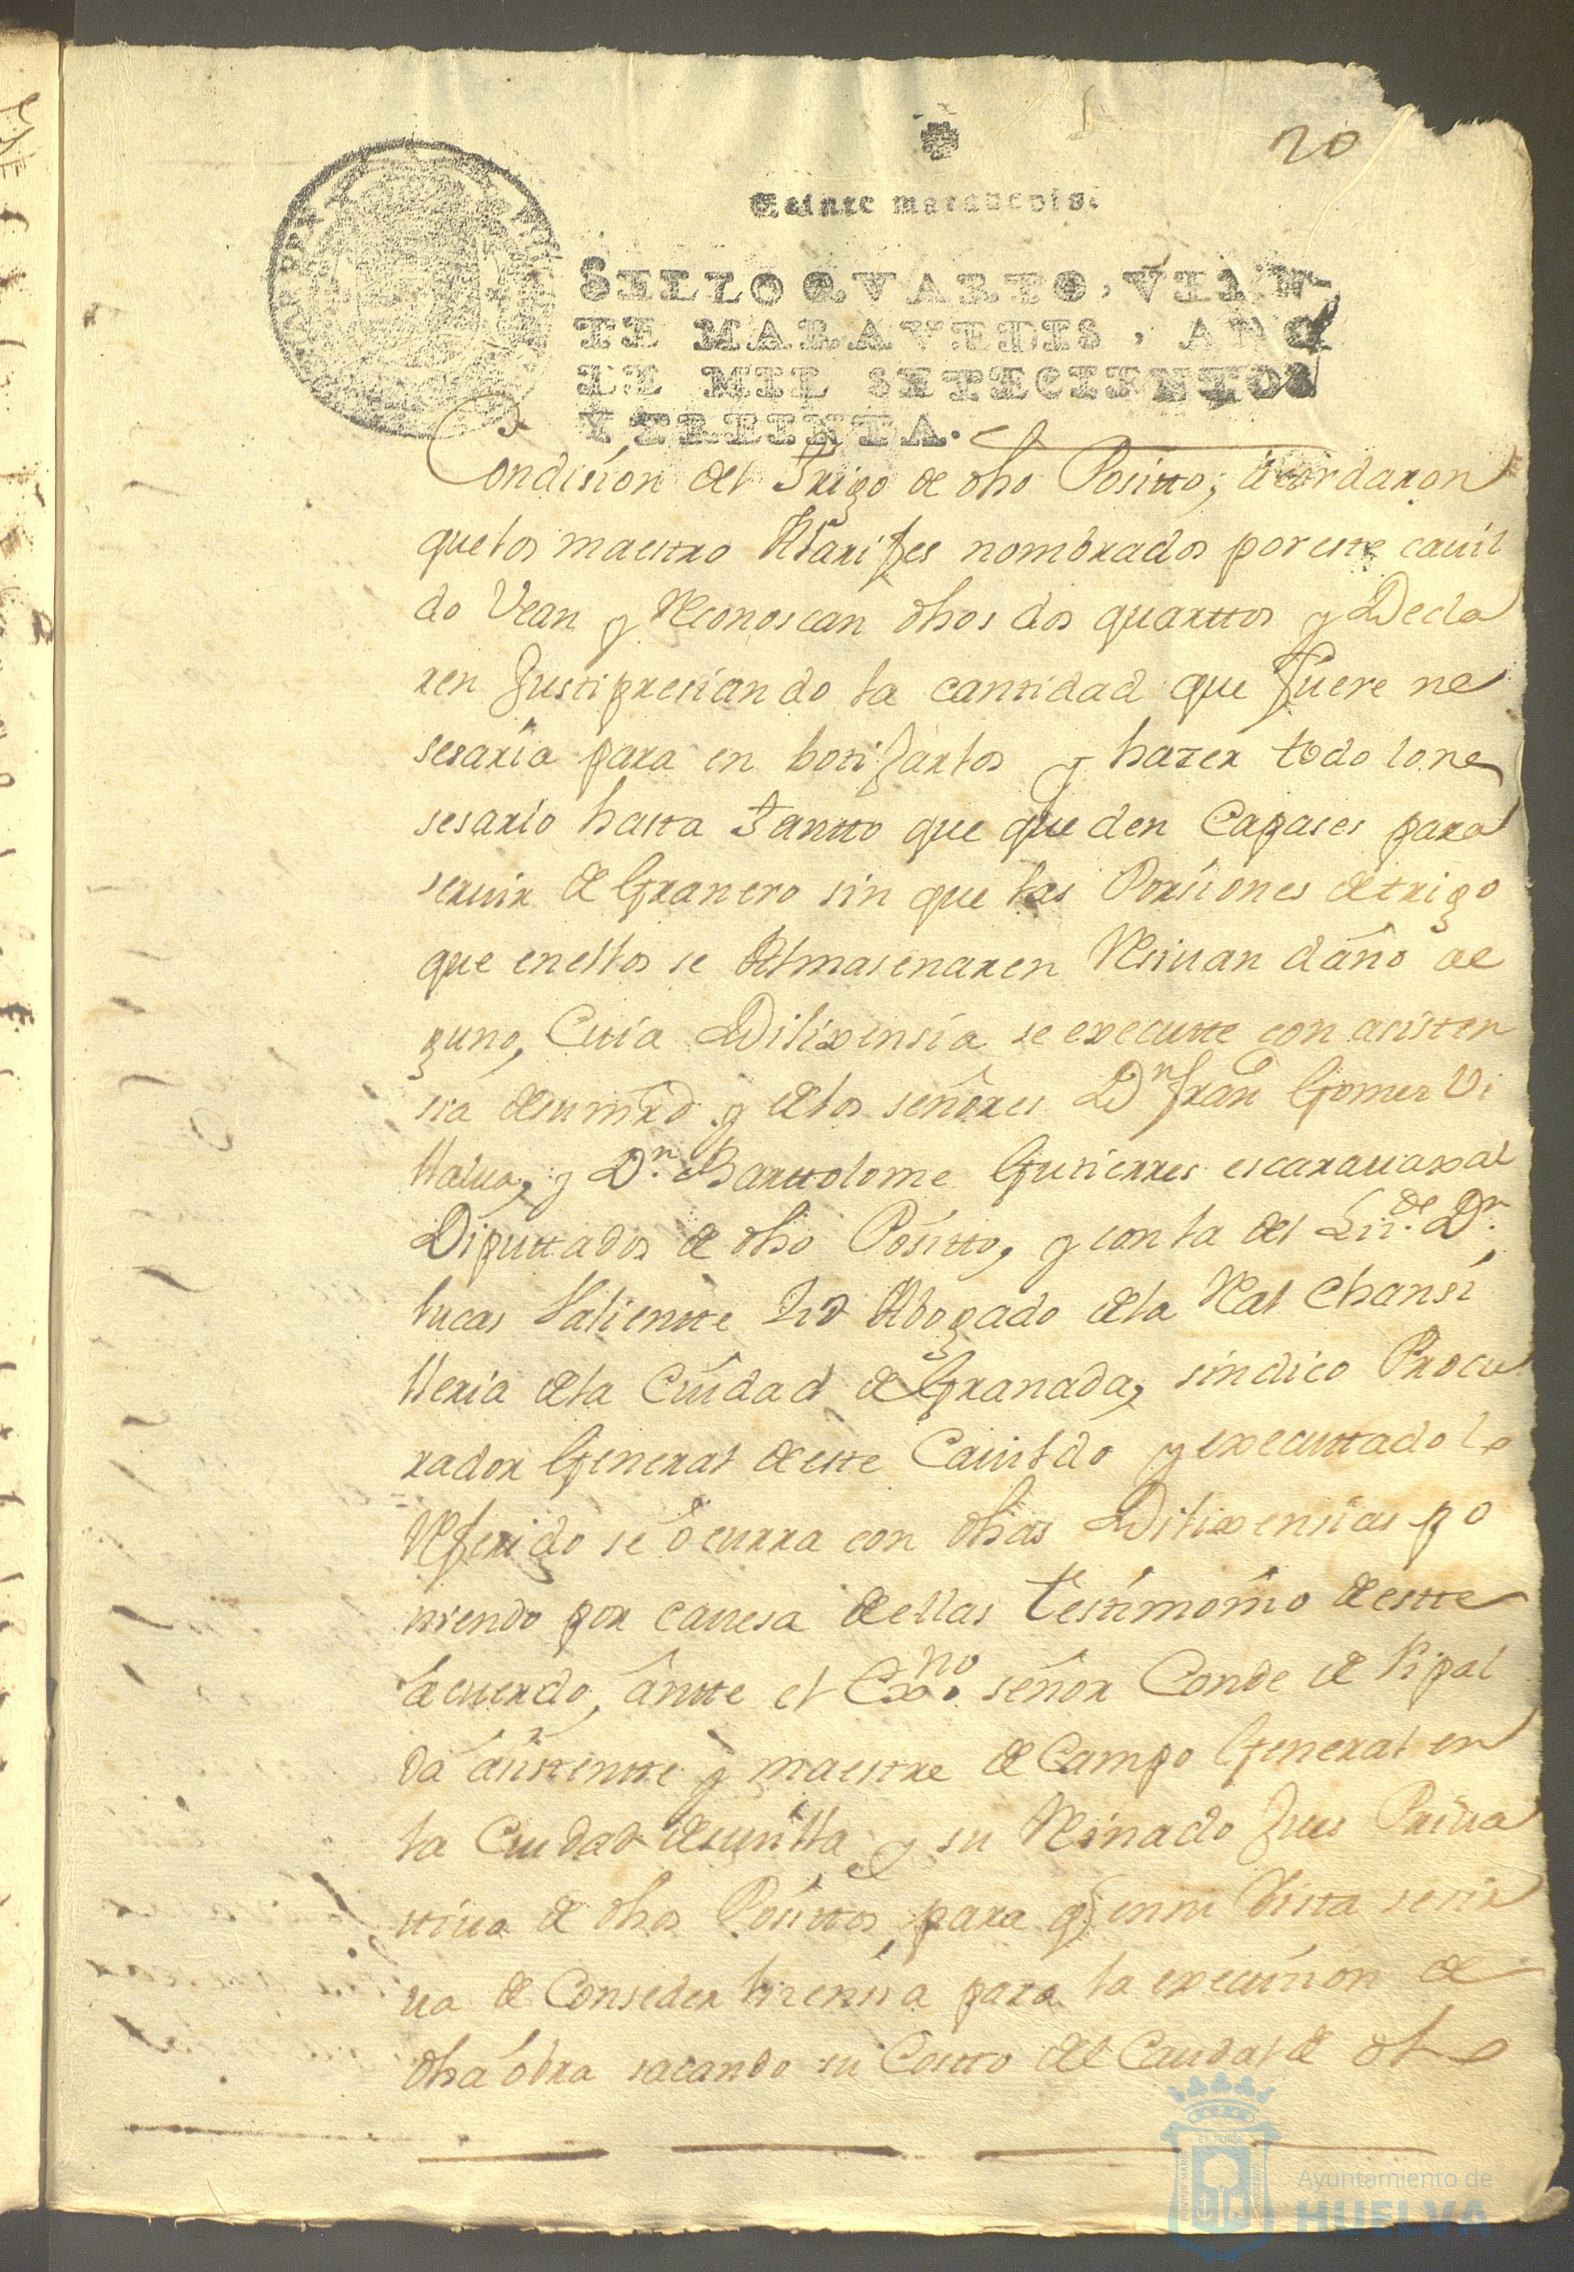 20
Veinte maravedis.
SELLO QVARTO, VEIN-
TE MARAVEDIS, AÑO
DE MIL SETECIENTOS
Y TREINTA.
Condision del Trigo de dho Positto, acordaron
que los maestro Alarifes nombrados por este cauil
do Vean y Reconoscan dhos dos quarttos y Decla
ren Justipresiando la cantidad que fuere ne
sesaria para en botifarlos y hazer todo lo ne
sesario hasta Tantto que queden Capases para
seruir de Granero sin que las Porsiones de trigo
que enellos se Almasenaren Resiuan daño al
guno, Cuia Dilixensia se executte con acisten
sia de su mrd y de los señores Dn Franco Gomez Vi
llalua, y Dn. Barttolome Gutierres escarauaxal
Diputtados de dho Positto, y con la del Lizdo. Dn.
lucas Valientte Abogado de la Real Chansi
lleria de la Ciudad de Granada, sindico Procu
rador General de este Cauildo y executtado lo
Referido se ocurra con dhas Dilixensias po
niendo por cauesa de ellas testimonio de estte
acuerdo, antte el Exmo. señor Conde de Ripal
da asistentte y maestre de Campo General en
la Ciudad de seuilla y su Reinado Jues Priua
ttiuo de dhos Posittos, para q en su Vista se sir
ua de Conseder lizensia para la execusion de
dha obra sacando su Costto del Caudal de dho
Ayuntamiento de
HUELVA